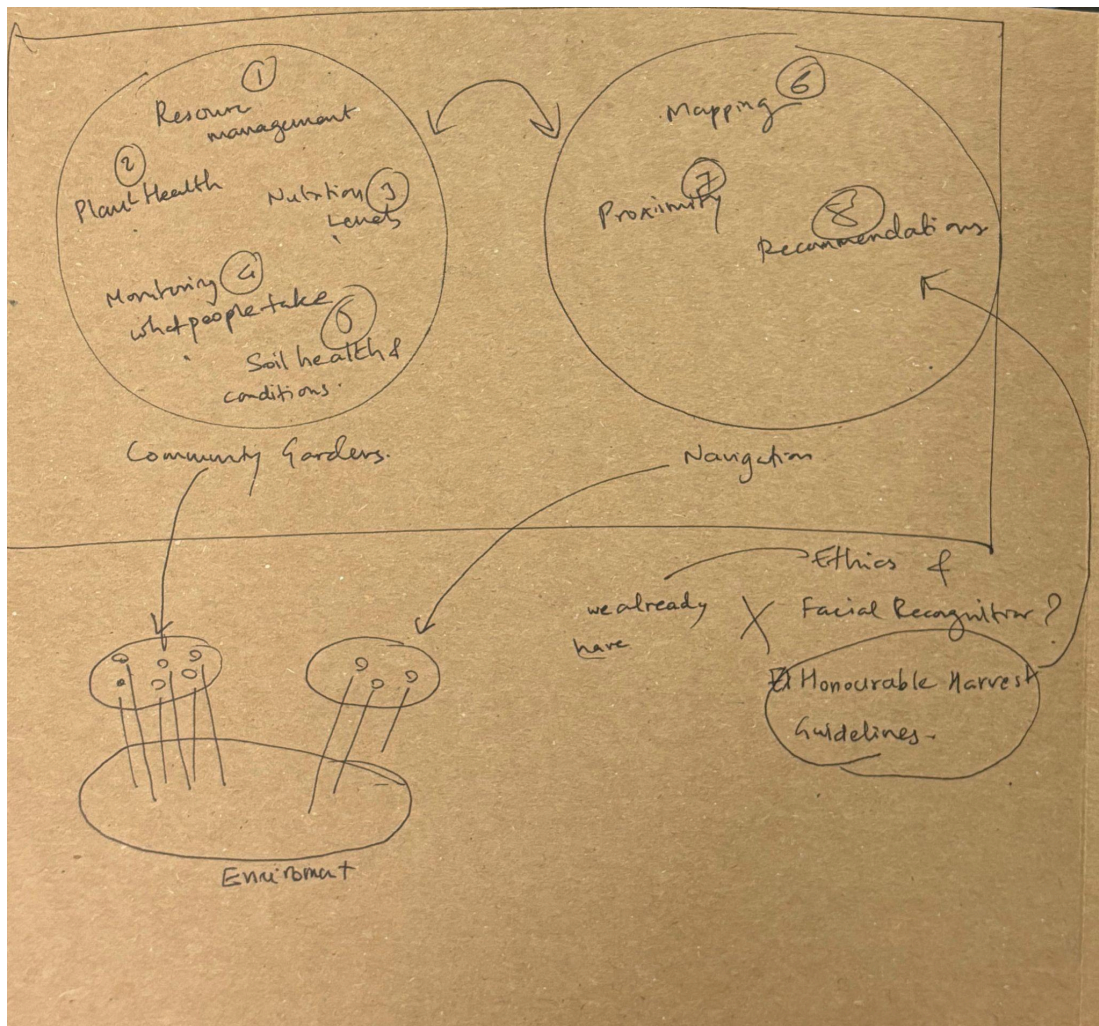 1
Resource
management
2
Plant Health
Nutrition 3
Levels
Monitoring 4
what people take
5
Soil health &
conditions.
Community Gardens.
6
Mapping
7
Proximity
8
Recommendations
Navigation
Ethics &
we already
have
X Facial Recognition?
Honourable Harvest
Guidelines.
Enviroment